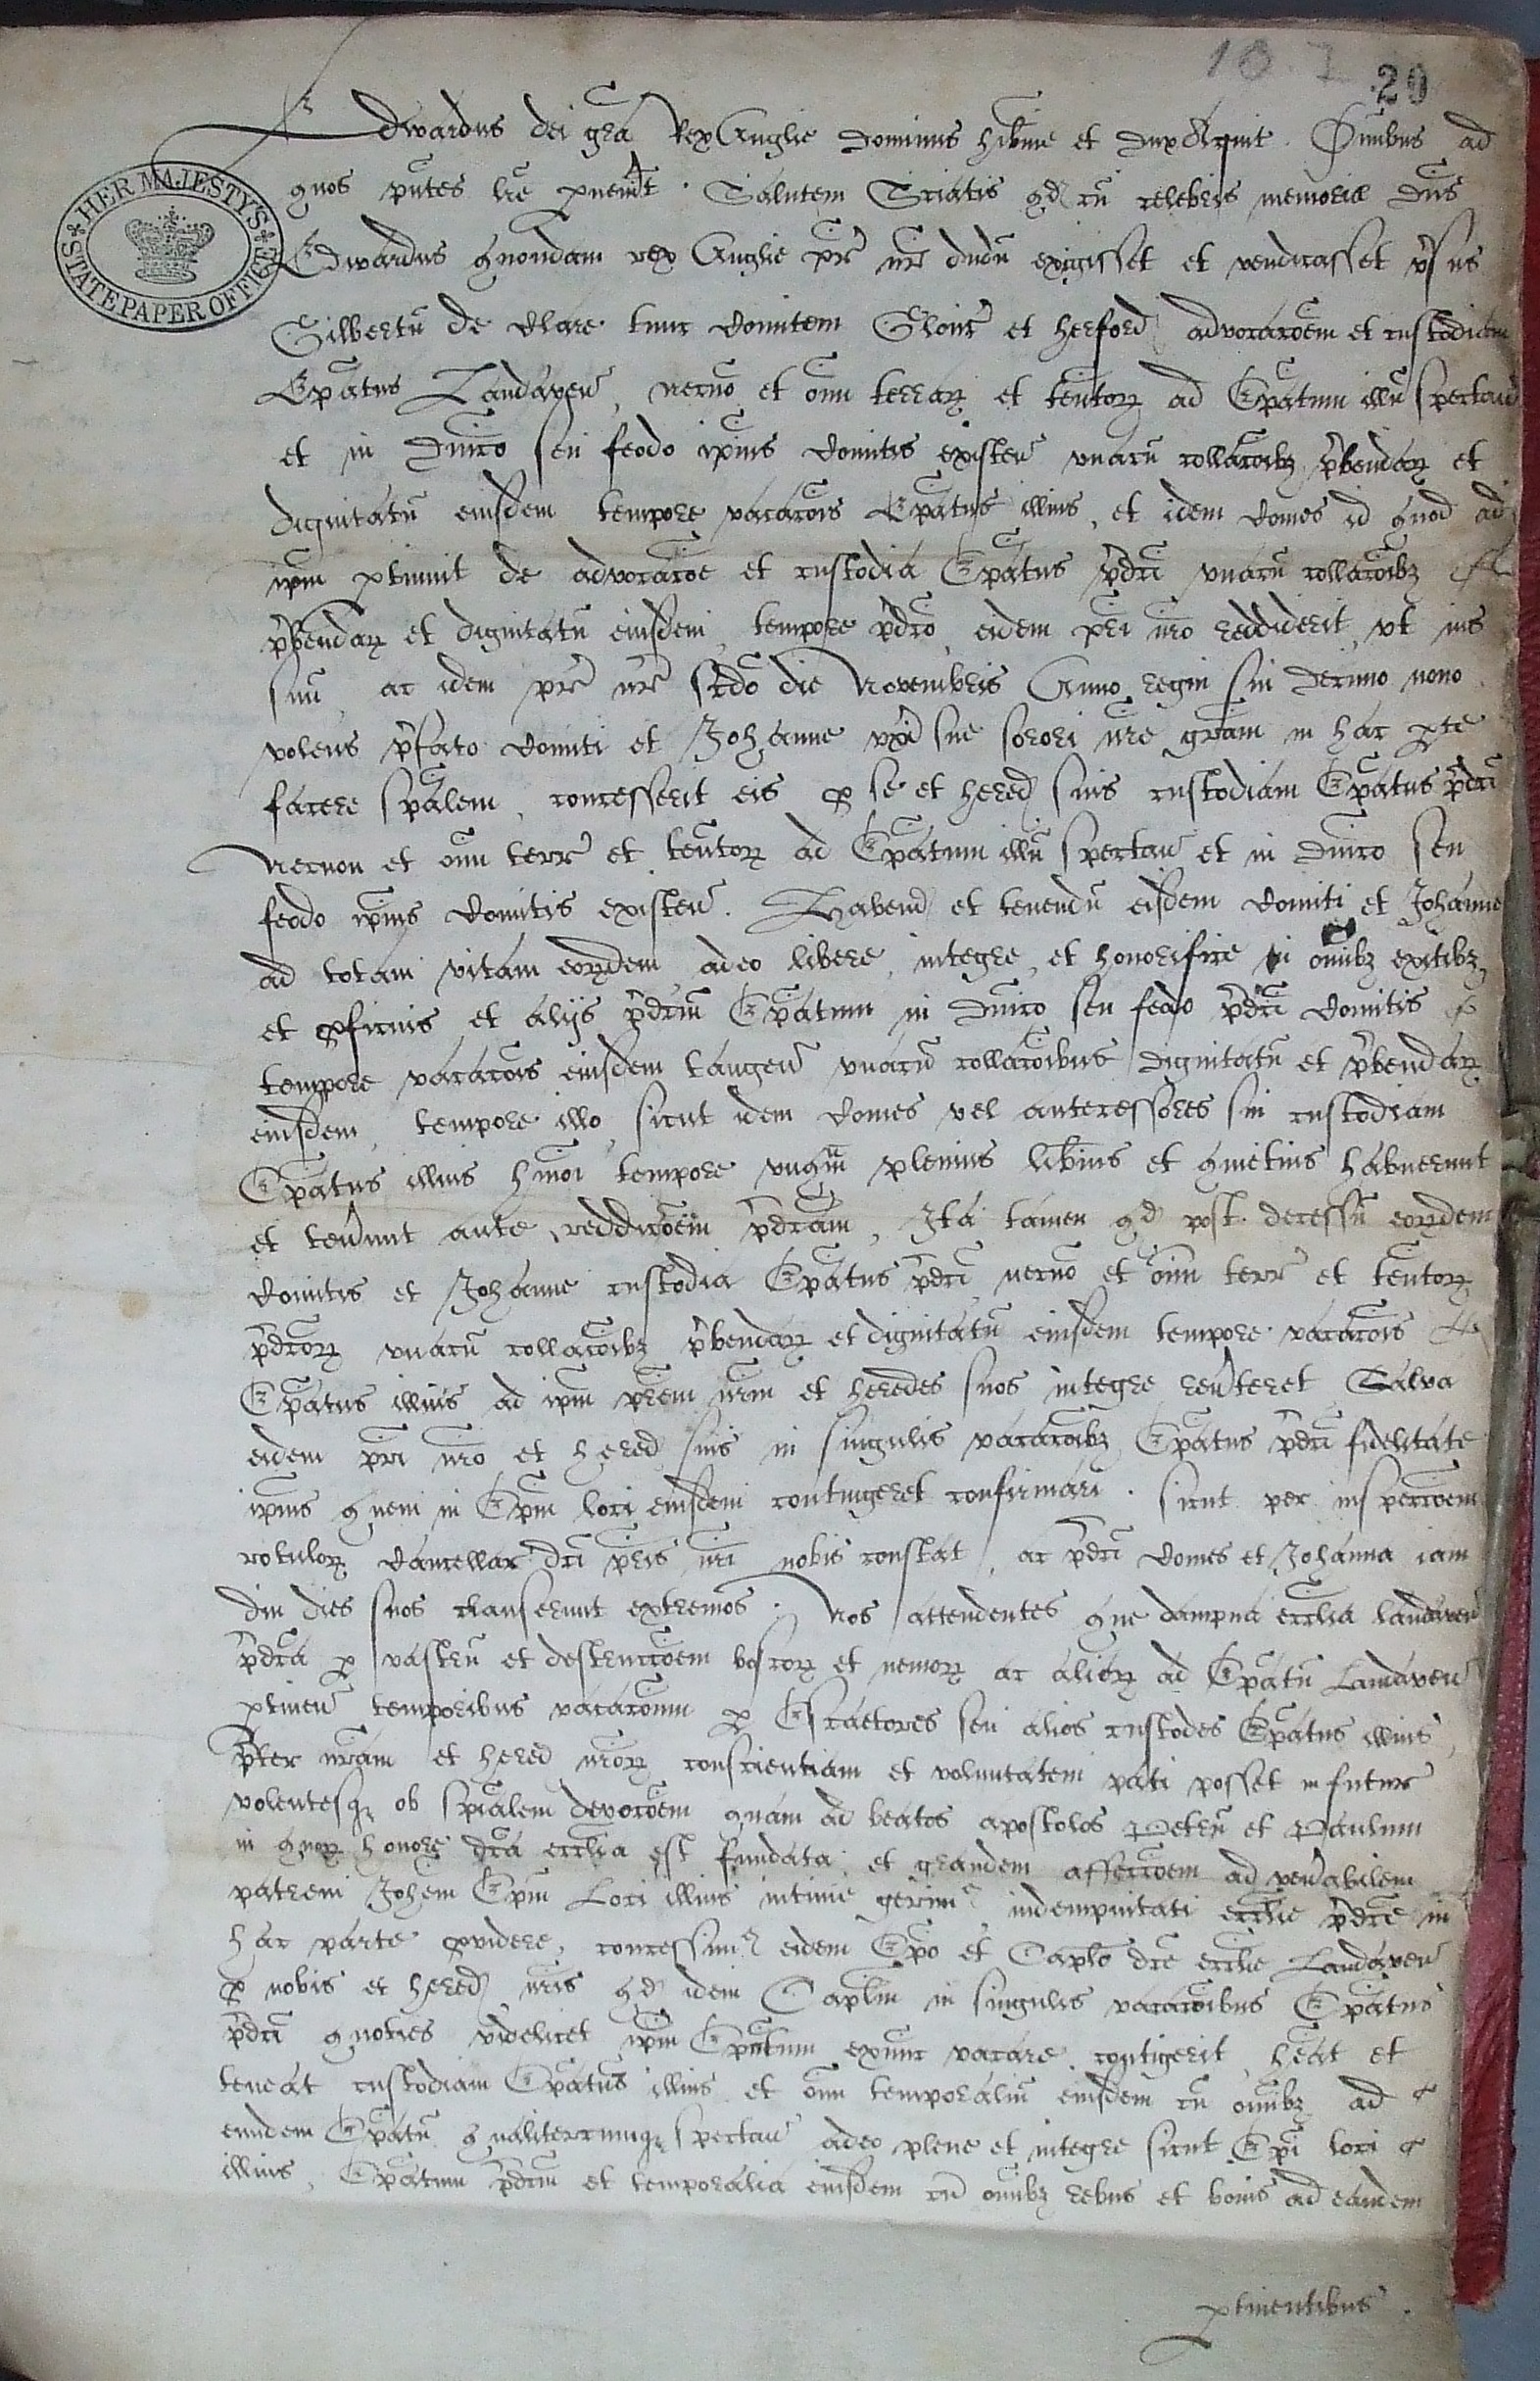 10. 1 29
HER MAJESTY'S STATE PAPER OFFICE
Edwardus dei gra Rex Anglie Dominus hibnie et Dux Aquit. Omnibus ad
quos pntes lre pvenint. Salutem Sciatis qd cu celebris memorie dns
Edwardus quondam rex Anglie pr nr dudu exegisset et vendicasset vsus
Gilbertu de Clare tunc Comitem Glouc et herford advocacoem et custodiam
Epatus Landaven, necno et oim terrar et tentor ad Epatum illu spectan
et in Dnico seu feodo ipius Comitis existen vnacu collacoibz pbendar et
dignitatu eiusdem tempore vacacois Epatus illius, et idem Comes id quod ad
ipm ptinuit de advocacoe et custodia Epatus pdci vnacu collacoibz
pbendar et dignitatu eiusdem tempore pdco eidem pri nro reddiderit, vt ius
suu, ac idem pr nr scdo die Novembris Anno regni sui decimo nono
volens pfato Comiti et Johanne vxi sue sorori nre gram in hac pte
facere spalem, concesserit eis p se et hered suis custodiam Epatus pdci
Necnon et oim terr et tentor ad Epatum illu spectan et in Dnico seu
feodo ipius Comitis existen. Habend et tenendu eisdem Comiti et Johanne
ad totam vitam eordem adeo libere, integre, et honorifice in omibz exitibz
et pficuis et alijs pdcum Epatum in Dnico seu feodo pdci Comitis
tempore vacacois eiusdem tangen vnacu collacoibus dignitatu et pbendar
eiusdem, tempore illo sicut idem Comes vel antecessores sui custodiam
Epatus illius hmoi tempore vnqm plenius libius et quietius habuerunt
et tenunt ante reddicoem pdcam, Ita tamen qd post decessu eordem
Comitis et Johanne custodia Epatus pdci necno et oim terr et tentor
pdcor vnacu collacoibz pbendar et dignitatu eiusdem tempore vacacois
Epatus illius ad ipm prem nrm et heredes suos integre revteret Salva
eidem pri nro et hered suis in singulis vacacoibz Epatus pdci fidelitate
ipius quem in Epm loci eiusdem contingeret confirmari. sicut per inspeccoem
rotulor Cancellar dci pris nri nobis constat, ac pdci Comes et Johanna iam
diu dies suos clauserunt extremos. Nos attendentes que dampna ecclia landaven
pdca p vastu et destruccoem boscor et nemor ac alior ad Epatu Landaven
ptinen temporibus vacaconum p Escaetores seu alios custodes Epatus illius,
pter nram et hered nror conscientiam et voluntatem pati posset in futur
volentesq ob spialem devocoem quam ad beatos apostolos Petru et Paulum
in quor honore dca ecclia est fundata et grandem affeccoem ad venabilem
patrem Johem Epm Loci illius intime gerim indempnitati ecclie pdce in
hac parte pvidere, concessim eidem Epo et Caplo dce ecclie Landaven
p nobis et hered nris qd idem Caplm in singulis vacacoibus Epatus
pdci quoties videlicet ipm Epatum exnunc vacare contigerit heat et
teneat custodiam Epatus illius et oim temporaliu eiusdem cu omibz ad
eundem Epatu qualitercumq spectan adeo plene et integre sicut Epi loci
illius, Epatum pdcum et temporalia eiusdem cu omibz rebus et bonis ad eandem
ptinentibus.